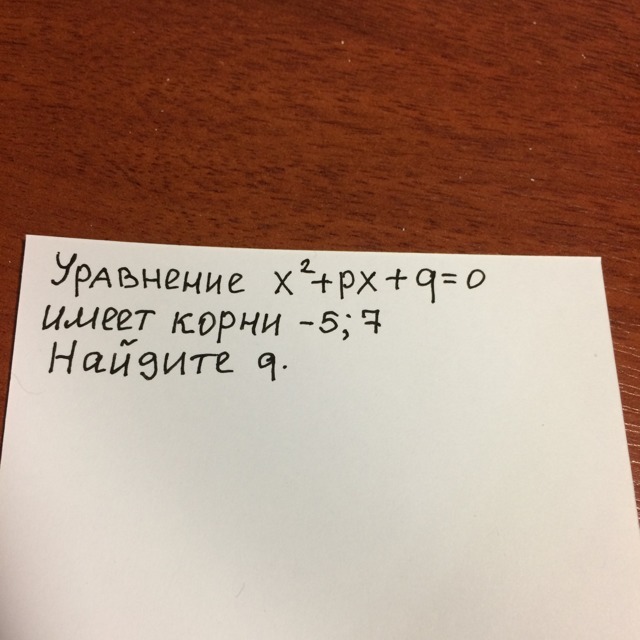 Уравнение x²+px+q=0
имеет корни -5; 7
Найдите q.